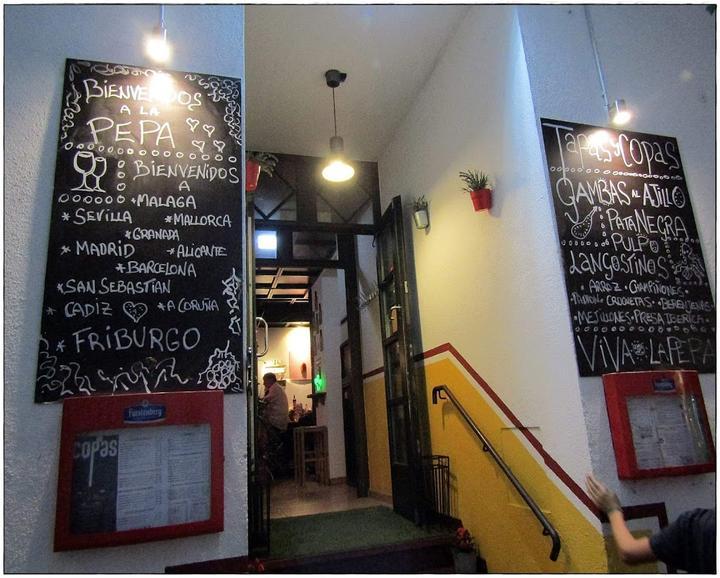 BIENVENIDOS
A LA
PEPA
BIENVENIDOS
A
*MALAGA
*SEVILLA *MALLORCA
*GRANADA
*MADRID *ALICANTE
*BARCELONA
*SAN SEBASTIAN
*CADIZ *A CORUÑA
*FRIBURGO
Fürstenberg
COPAS
TAPAS Y COPAS
GAMBAS AL AJILLO
PATA NEGRA
PULPO
LANGOSTINOS
ARROZ * CHAMPIÑONES
CROQUETAS * BERENJENAS
MEJILLONES * PRESA IBERICA
VIVA LA PEPA